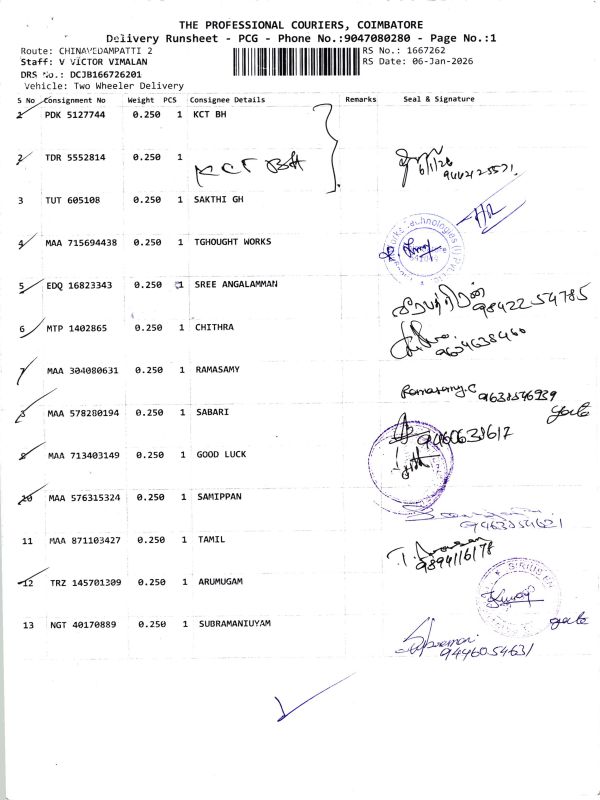 THE PROFESSIONAL COURIERS, COIMBATORE
Delivery Runsheet - PCG - Phone No.:9047080280 - Page No.:1
Route: CHINAVEDAMPATTI 2
RS No.: 1667262
Staff: V VICTOR VIMALAN
RS Date: 06-Jan-2026
DRS No.: DCJB166726201
Vehicle: Two Wheeler Delivery
S No Consignment No Weight PCS Consignee Details Remarks Seal & Signature
1 PDK 5127744 0.250 1 KCT BH
2 TDR 5552814 0.250 1 KCT BH 6/1/26
3 TUT 605108 0.250 1 SAKTHI GH
HR
4 MAA 715694438 0.250 1 TGHOUGHT WORKS
5 EDQ 16823343 0.250 1 SREE ANGALAMMAN
98422 54785
6 MTP 1402865 0.250 1 CHITHRA
9634638460
7 MAA 304080631 0.250 1 RAMASAMY
Ramasamy.C 9638546939
8 MAA 578280194 0.250 1 SABARI
9460638617
9 MAA 713403149 0.250 1 GOOD LUCK
10 MAA 576315324 0.250 1 SAMIPPAN
9463854621
11 MAA 871103427 0.250 1 TAMIL
9894116178
12 TRZ 145701309 0.250 1 ARUMUGAM
13 NGT 40170889 0.250 1 SUBRAMANIUYAM
9446054631